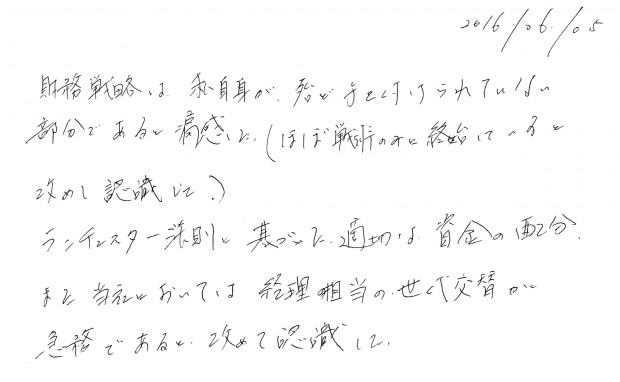 2016/06/05
財務戦略は、私自身が、殆ど手を付けられていない
部分であると痛感した。(ほぼ戦術のみに終始していると
改めて認識した。)
ランチェスター法則に基づいた適切な資金の配分、
また当社においては経理担当の世代交替が
急務であると、改めて認識した。